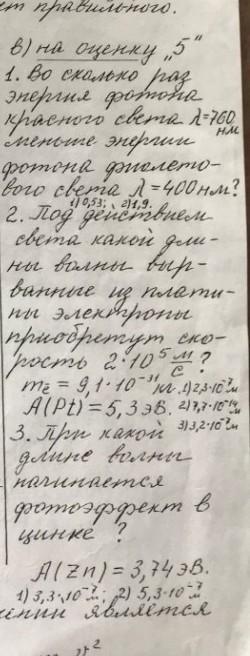 ет правильного.
в) на оценку „5"
1. Во сколько раз
энергия фотона
красного света λ=760
нм
меньше энергии
фотона фиолето-
вого света λ=400нм?
1) 0,53; 2) 1,9.
2. Под действием
света какой дли-
ны волны выр-
ванные из плати-
ны электроны
приобретут ско-
рость 2·10⁵ м/с ?
mē = 9,1·10⁻³¹ кг. 1) 2,3·10⁻⁷ м
A(Pt) = 5,3 эВ. 2) 7,7·10⁻¹⁴ м
3. При какой 3) 3,2·10⁻⁷ м
длине волны
начинается
фотоэффект в
цинке ?
A(Zn) = 3,74 эВ.
1) 3,3·10⁻⁷ м; 2) 5,3·10⁻⁷ м
ении является